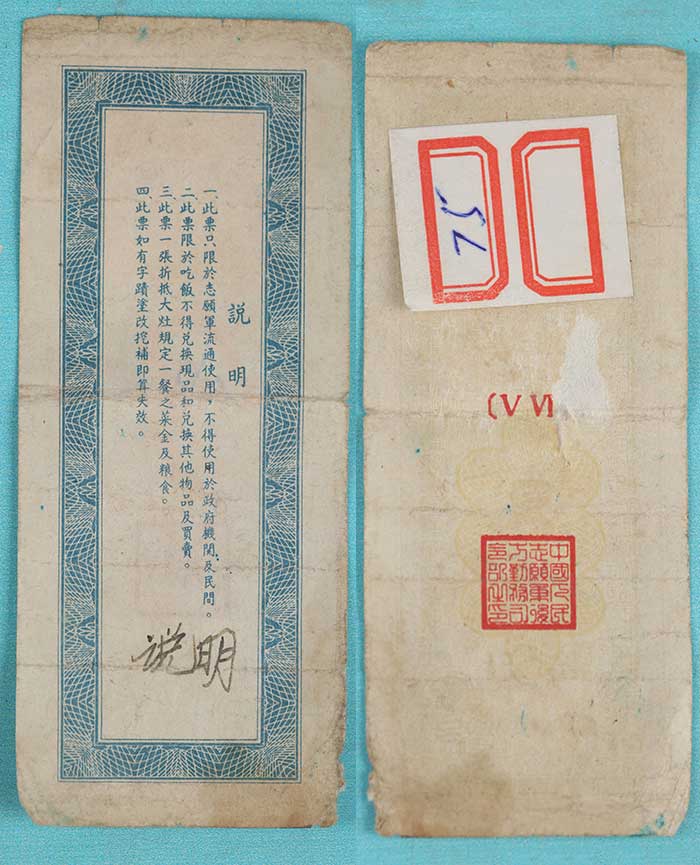 說明
一、此票只限於志願軍流通使用，不得使用於政府機関及民間。
二、此票限於吃飯不得兌換現品和兌換其他物品及買賣。
三、此票一張折抵大灶規定一餐之菜金及粮食。
四、此票如有字蹟塗改挖補即算失效。
说明
52
(V VI
中國人民
志願軍後
方勤務司
令部之印